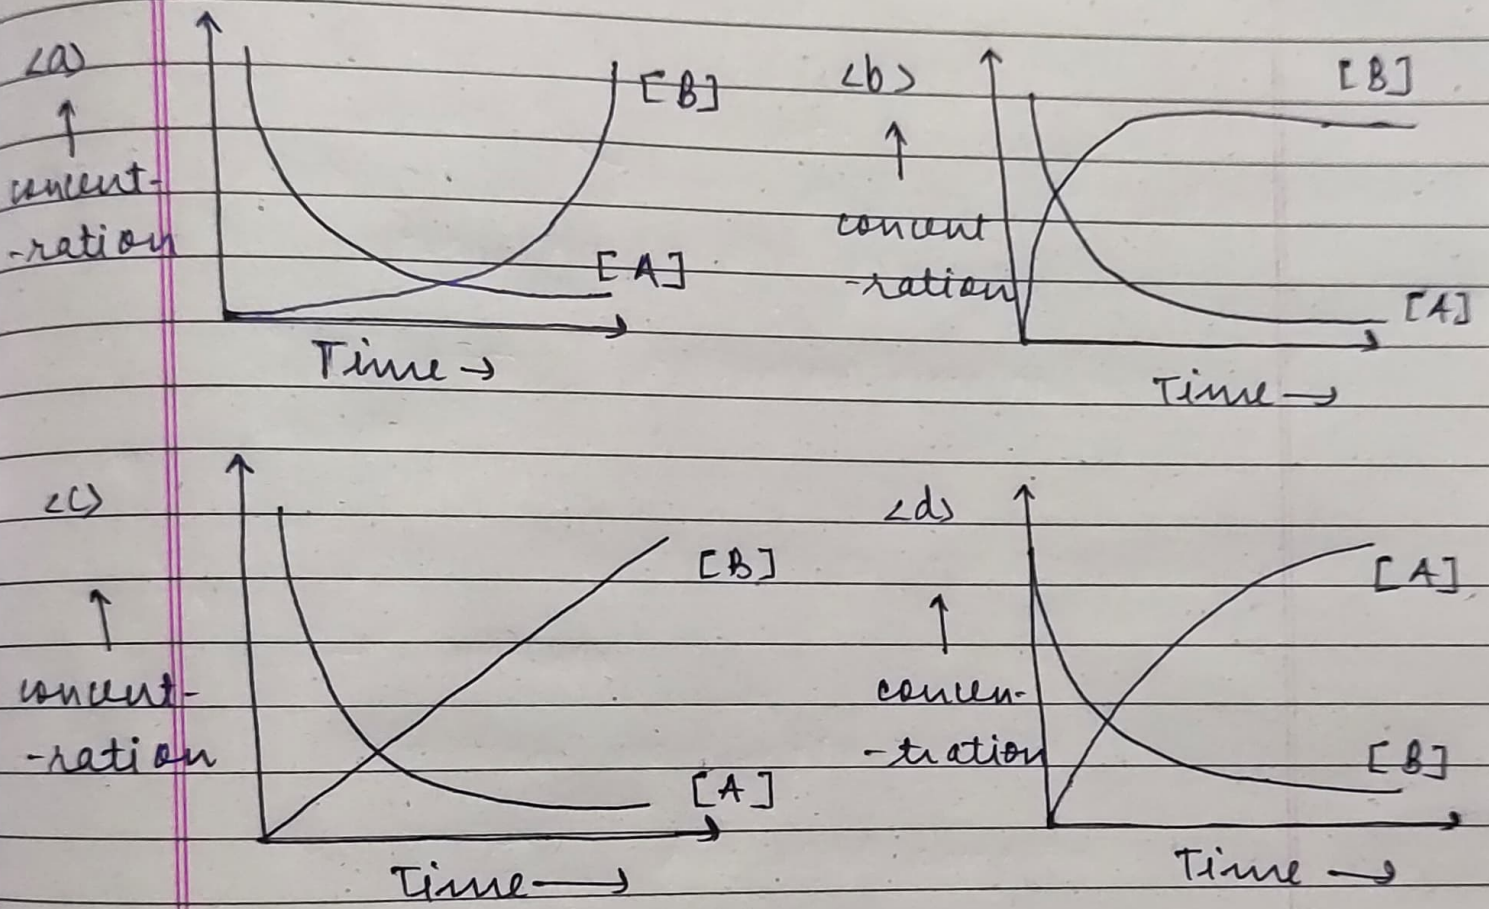 <a>
↑
concent-
-ration
[B]
[A]
Time →
<b>
↑
concent
-ration
[B]
[A]
Time →
<c>
↑
concent-
-ration
[B]
[A]
Time →
<d>
↑
concen-
-tration
[A]
[B]
Time →